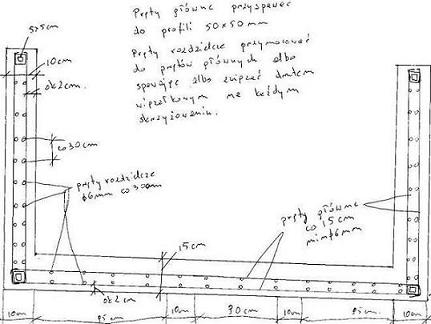 Pręty główne przyspawać
do profili 50x50mm
Pręty rozdzielcze przymocować
do prętów głównych albo
spawając albo związać drutem
wiązałkowym na każdym
skrzyżowaniu.
5x5cm
10cm
ok2cm.
co30cm
pręty rozdzielcze
ϕ6mm co 30cm
pręty główne
co 15cm
min ϕ6mm
15cm
ok2cm
10cm
95cm
10cm
90cm
10cm
95cm
10cm